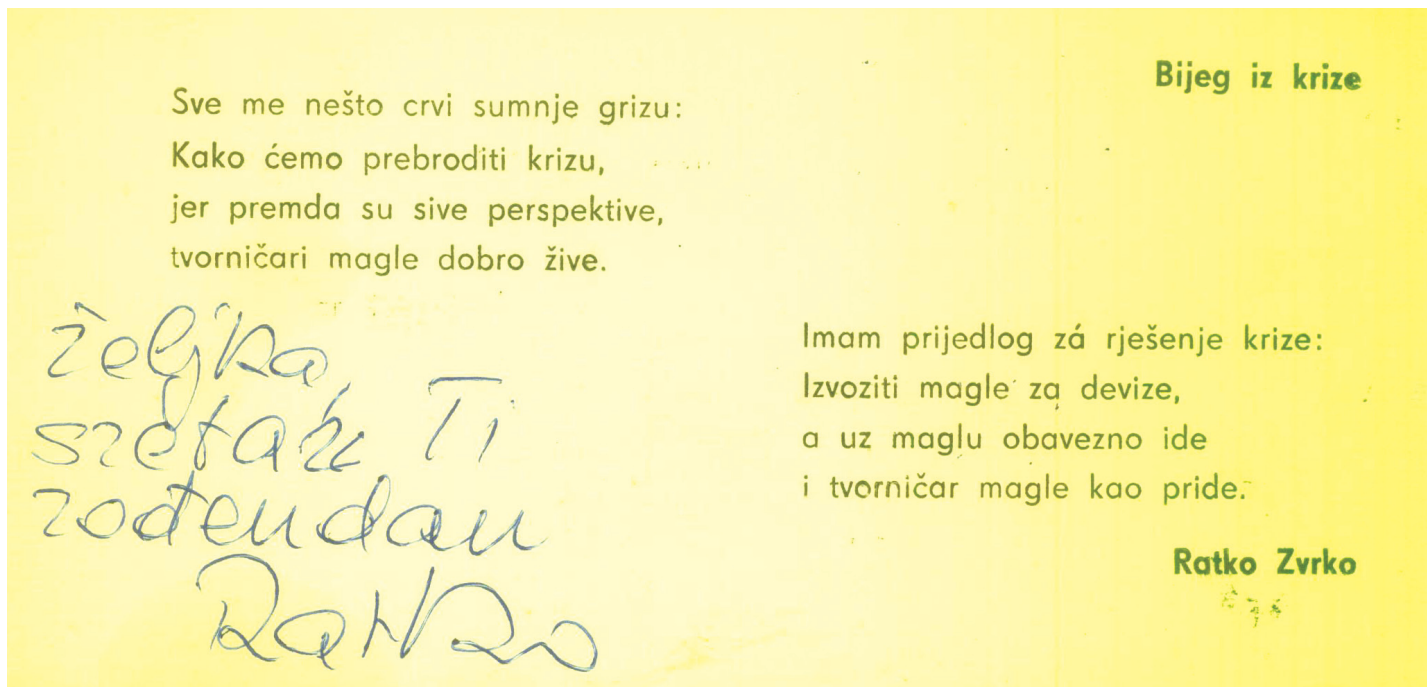 Bijeg iz krize
Sve me nešto crvi sumnje grizu:
Kako ćemo prebroditi krizu,
jer premda su sive perspektive,
tvorničari magle dobro žive.
Imam prijedlog zá rješenje krize:
Izvoziti magle za devize,
a uz maglu obavezno ide
i tvorničar magle kao pride.
Ratko Zvrko
Željka,
sretan Ti
rođendan
Ratko